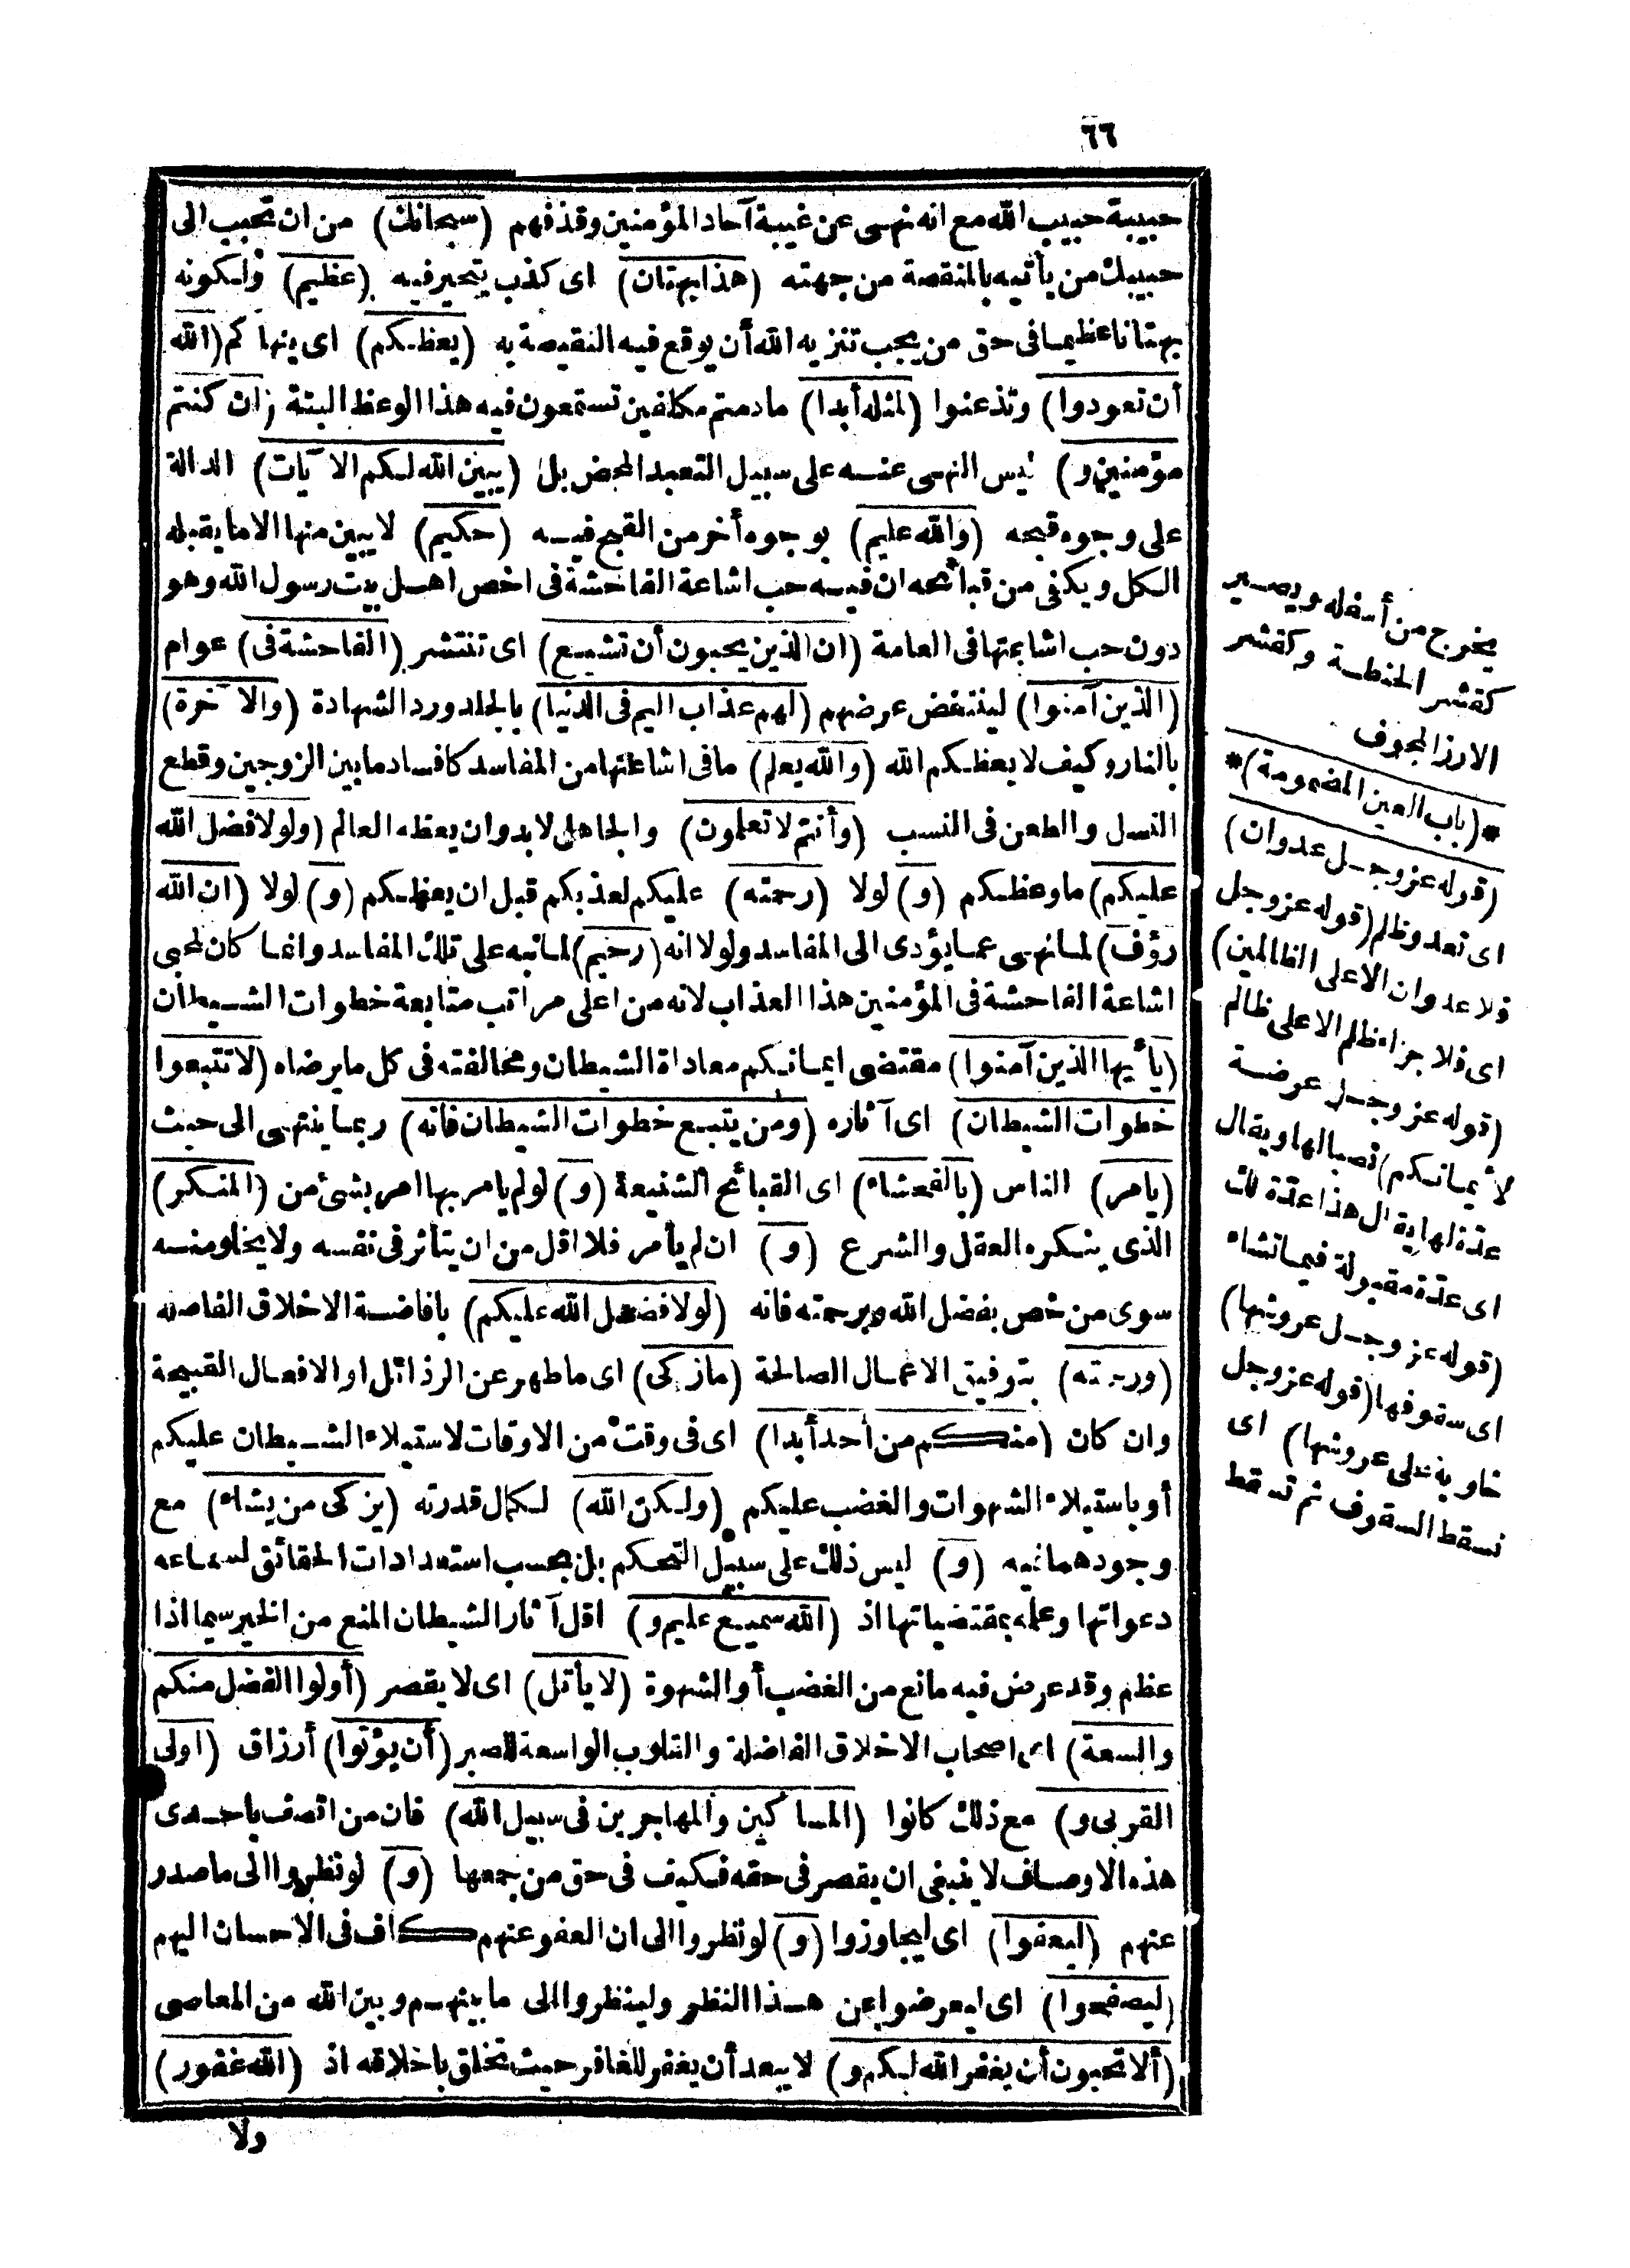 ٦٦
حبيبة حبيب الله مع انه نهى عن غيبة آحاد المؤمنين وقذفهم (سبحانك) من ان تحبب الى
حبيبك من يأتيه بالمنقصة من جهته (هذا بهتان) اى كذب يتحير فيه (عظيم) ولكونه
بهتانا عظيما فى حق من يجب تنزيه الله أن يوقع فيه النقيصة به (يعظكم) اى ينهاكم (الله
أن تعودوا) وتذعنوا (لمثله أبدا) ما دمتم مكلفين تستمعون فيه هذا الوعظ البتة (ان كنتم
مؤمنين و) ليس النهى عنه على سبيل التعبد المحض بل (يبين الله لكم الآيات) الدالة
على وجوه قبحه (والله عليم) بوجوه أخر من القبح فيه (حكيم) لا يبين منها الا ما يقبله
الكل ويكفى من قبائحه ان فيه حب اشاعة الفاحشة فى اخص اهل بيت رسول الله وهو
دون حب اشاعتها فى العامة (ان الذين يحبون أن تشيع) اى تنتشر (الفاحشة فى) عوام
(الذين آمنوا) لينتقض عرضهم (لهم عذاب اليم فى الدنيا) بالجلد ورد الشهادة (والآخرة)
بالنار وكيف لا يعظكم الله (والله يعلم) ما فى اشاعتها من المفاسد كافساد ما بين الزوجين وقطع
النسل والطعن فى النسب (وأنتم لا تعلمون) والجاهل لا بد وان يعظه العالم (ولولا فضل الله
عليكم) ما وعظكم (و) لولا (رحمته) عليكم لعذبكم قبل ان يعظكم (و) لولا (ان الله
رؤف) لما نهى عما يؤدى الى المفاسد ولولا انه (رحيم) لما نبه على تلك المفاسد وانما كان لمحبى
اشاعة الفاحشة فى المؤمنين هذا العذاب لانه من اعلى مراتب متابعة خطوات الشيطان
(يأيها الذين آمنوا) مقتضى ايمانكم معاداة الشيطان ومخالفته فى كل ما يرضاه (لا تتبعوا
خطوات الشيطان) اى آثاره (ومن يتبع خطوات الشيطان فانه) ربما ينتهى الى حيث
(يامر) الناس (بالفحشاء) اى القبائح الشنيعة (و) لو لم يامر بها امر بشئ من (المنكر)
الذى ينكره العقل والشرع (و) ان لم يأمر فلا اقل من ان يتأثر فى نفسه ولا يخلو منه
سوى من خص بفضل الله وبرحمته فانه (لولا فضل الله عليكم) بافاضة الاخلاق الفاضلة
(ورحمته) بتوفيق الاعمال الصالحة (ما زكى) اى ما طهر عن الرذائل او الافعال القبيحة
وان كان (منكم من أحد أبدا) اى فى وقت من الاوقات لاستيلاء الشيطان عليكم
أو باستيلاء الشهوات والغضب عليكم (ولكن الله) لكمال قدرته (يزكى من يشاء) مع
وجود همانيه (و) ليس ذلك على سبيل التحكم بل بحسب استعدادات الحقائق لسماعه
دعواتها وعلمه بمقتضياتها اذ (الله سميع عليم و) اقل آثار الشيطان المنع من الخير سيما اذا
عظم وقد عرض فيه مانع من الغضب أو الشهوة (لا يأتل) اى لا يقصر (أولوا الفضل منكم
والسعة) اى اصحاب الاخلاق الفاضلة والقلوب الواسعة للصبر (أن يؤتوا) أرزاق (اولى
القربى و) مع ذلك كانوا (المساكين والمهاجرين فى سبيل الله) فان من اتصف باحدى
هذه الاوصاف لا ينبغى ان يقصر فى حقه فكيف فى حق من جمعها (و) لو نظروا الى ما صدر
عنهم (ليعفوا) اى ليجاوزوا (و) لو نظروا الى ان العفو عنهم كاف فى الاحسان اليهم
(ليصفحوا) اى ليعرضوا عن هذا النظر ولينظروا الى ما بينهم وبين الله من المعاصى
(ألا تحبون أن يغفر الله لكم و) لا يبعد أن يغفر للغافر حيث تخلق باخلاقه اذ (الله غفور)
ولا
يخرج من أسفله ويصير
كقشر الحنطة وكقشر
الارز المجوف
*(باب العين المضمومة)*
(قوله عز وجل عدوان)
اى تعد وظلم (قوله عز وجل
فلا عدوان الا على الظالمين)
اى فلا جزاء ظلم الا على ظالم
(قوله عز وجل عرضة
لأيمانكم) نصبا لها ويقال
عدة لها يقال هذا عدة لك
اى عدة مقبولة فيما تشاء
(قوله عز وجل عروشها)
اى سقوفها (قوله عز وجل
خاوية على عروشها) اى
تسقط السقوف ثم تسقط